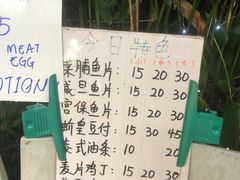 5
MEAT
EGG
OTION
今日特色
(小) (中) (大)
菜脯鱼片 15 20 30
咸旦鱼片 15 20 30
宫保鱼片 15 20 30
皇豆付 15 30 45
泰式油条 10 20
麦片鸡丁 15 20 30